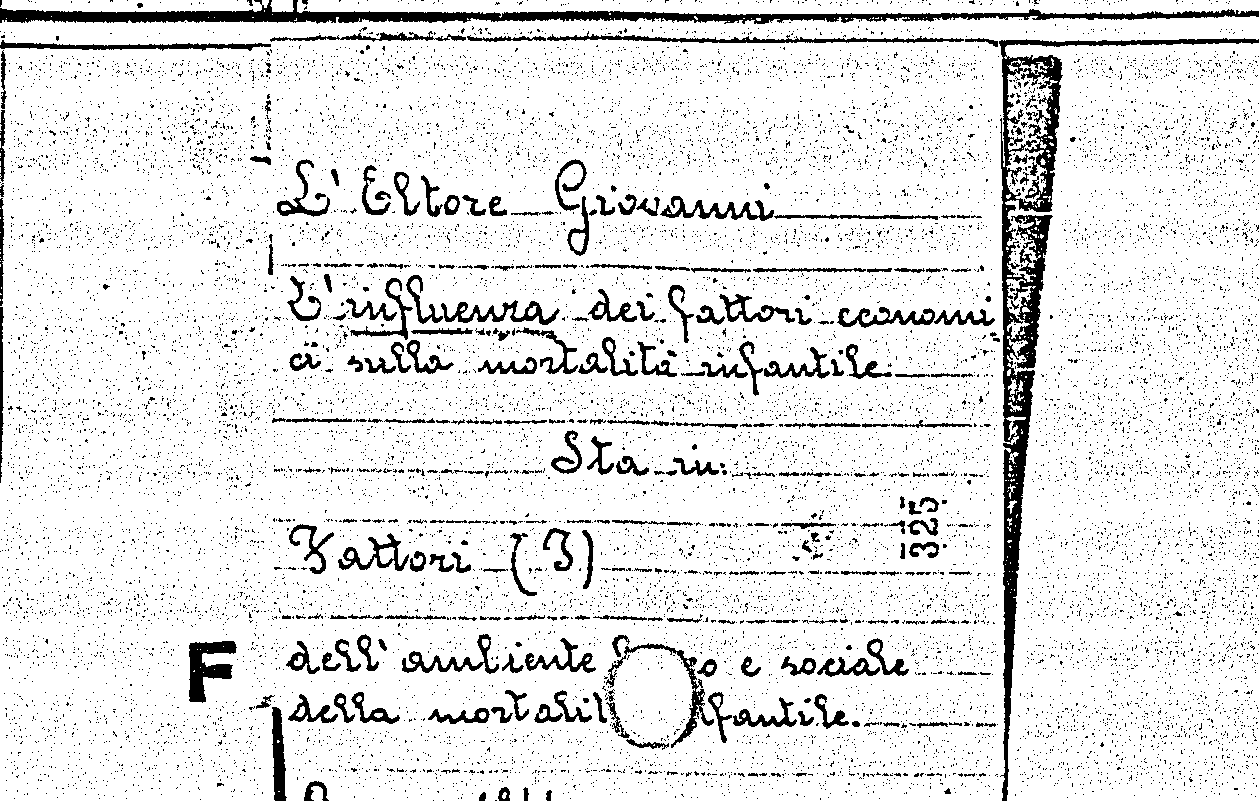 L'Eltore Giovanni
L'influenza dei fattori economi
ci sulla mortalità infantile.
Sta in:
325
Fattori (I)
F
dell'ambiente e sociale
della infantile.